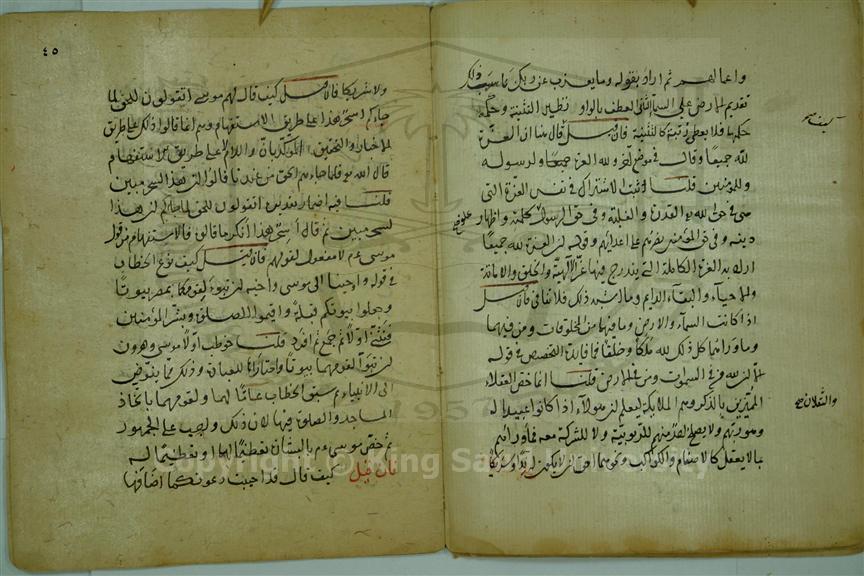 واعمالهم ثم اراد بقوله وما يعزب عن ربك مما سبق ذكر
تقديم الارض على السماء الثاني العطف بالواو نظير التثنية وحكمه
حكمها فلا يعطى رتبة كالتثنية فان قيل قال هنا ان العزة
لله جميعا وقال في موضع اخر ولله العزة جميعا ولرسوله
وللمؤمنين قلنا وثبت الاشتراك في نفس العزة التي
هي في حق الله القدرة والغلبة وفي حق الرسول كلمته واظهار
دينه وفي حق المؤمنين نصرتهم على اعدائهم وقوله ان العزة لله جميعا
اراد به العزة الكاملة التي يندرج فيها عز الالهية والخلق والاماتة
والاحياء والبقاء الدايم وما اشبه ذلك فلا تنافي فان قيل
اذا كانت السماء والارض وما فيها من المخلوقات ومن فيهما
وما وراءهما كل ذلك لله ملكا وخلقا فما فائدة التخصيص في قوله
الا ان لله من في السموات ومن في الارض قلنا انما خص العقلاء
المميزين بالذكر وهم الملايكة ليعلم ان هؤلاء اذا كانوا عبيدا له
وهو ربهم ولا يصلح احد منهم للربوبية ولا للشركة معه فما وراءهم
مما لا يعقل كالاصنام والكواكب ونحوهما احق ان لا يكون له ندا وشريكا
كيف
والثقلان
٤٥
ولا شريكا فان قيل كيف قال لهم موسى اتقولون للحق لما
جاءكم اسحر هذا على طريق الاستفهام وهم انما قالوا ذلك على طريق
الاخبار والتحقيق المؤكد بان واللام لا على طريق الاستفهام
قال الله تعالى فلما جاءهم الحق من عندنا قالوا ان هذا لسحر مبين
قلنا فيه اضمار تقديره اتقولون للحق لما جاءكم ان هذا
لسحر مبين ثم قال اسحر هذا انكر ما قالوه فالاستفهام من قول
موسى عم لا مفعول لقولهم فان قيل كيف نوع الخطاب
في قوله واوحينا الى موسى واخيه ان تبوءا لقومكما بمصر بيوتا
واجعلوا بيوتكم قبلة واقيموا الصلوة وبشر المؤمنين
فثنى اولا ثم جمع ثم افرد قلنا خوطب اولا موسى وهرون
ان تبوءا لقومهما بيوتا واختياراها للعبادة وذلك مما يفوض
الى الانبياء ثم سيق الخطاب عاما لهما ولقومهما باتخاذ
المساجد والصلوة فيها لان ذلك واجب على الجمهور
ثم خص موسى عم بالبشارة تعظيما لها وتعظيما له
فان قيل كيف قال قد اجيبت دعوتكما اضافها